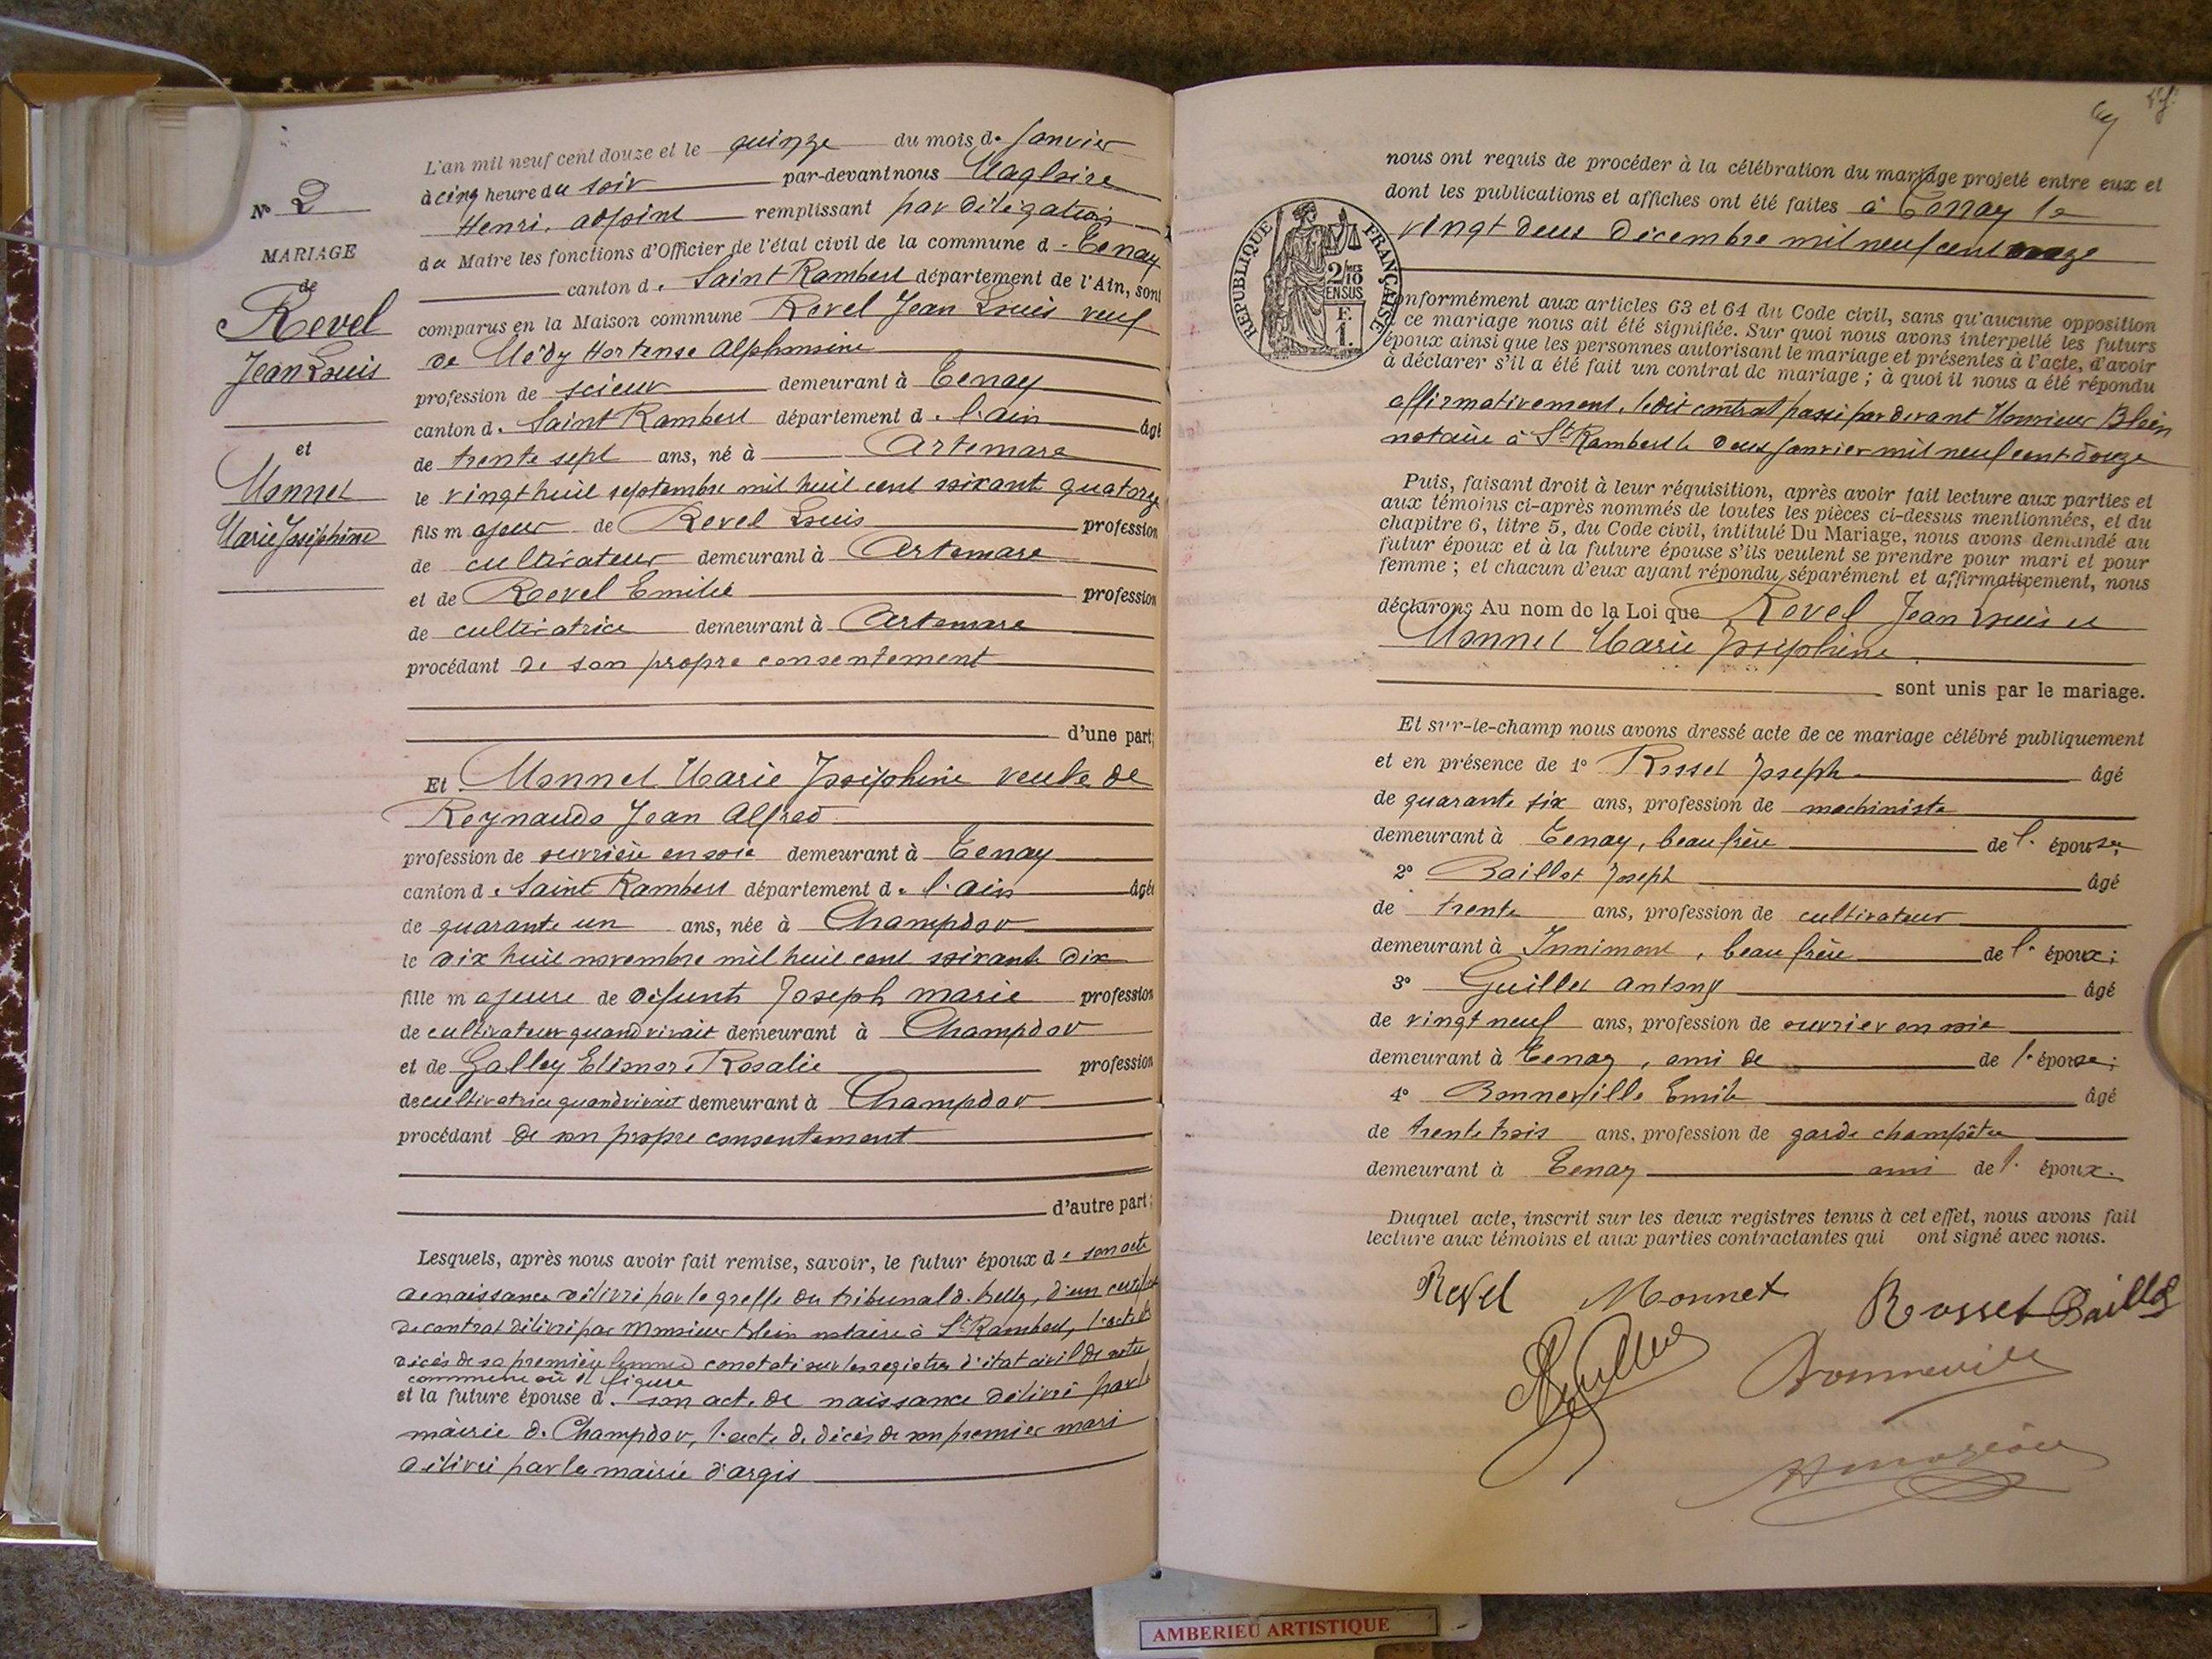 L'an mil neuf cent douze et le quinze du mois de Janvier
à cinq heure du soir par-devant nous Magloire
Henri, adjoint remplissant par délégation
du Maire les fonctions d'Officier de l'état civil de la commune de Tenay
canton de Saint Rambert département de l'Ain, sont
N° 2
MARIAGE
de
Revel
Jean Louis
et
Monnet
Marie Joséphine
comparus en la Maison commune Revel Jean Louis veuf
de Hortense Alphonsine
profession de scieur demeurant à Tenay
canton de Saint Rambert département de l'Ain âgé
de trente sept ans, né à Artemare
le vingt huit septembre mil huit cent soixante quatorze
fils majeur de Revel Louis profession
de cultivateur demeurant à Artemare
et de Revel Emilie profession
de cultivatrice demeurant à Artemare
procédant de son propre consentement
d'une part;
Et Monnet Marie Joséphine veuve de
Reynaud Jean Alfred
profession de ouvrière en soie demeurant à Tenay
canton de Saint Rambert département de l'Ain âgée
de quarante un ans, née à Champdor
le dix huit novembre mil huit cent soixante dix
fille majeure de défunts Joseph Marie profession
de cultivateur quand vivait demeurant à Champdor
et de Galley Rosalie profession
de cultivatrice quand vivait demeurant à Champdor
procédant de son propre consentement
d'autre part;
Lesquels, après nous avoir fait remise, savoir, le futur époux de son acte
de naissance délivré par le greffe du tribunal de belley, d'un certificat
de contrat délivré par Monsieur Blein notaire à St Rambert, l'acte de
décès de sa première femme constaté sur les registres d'état civil de notre
commune où il figure
et la future épouse de son acte de naissance délivré par la
mairie de Champdor, l'acte de décès de son premier mari
délivré par la mairie d'argis
nous ont requis de procéder à la célébration du mariage projeté entre eux et
dont les publications et affiches ont été faites à Tenay le
vingt deux décembre mil neuf cent onze
REPUBLIQUE FRANÇAISE
2/10
EN SUS
F.
1.
conformément aux articles 63 et 64 du Code civil, sans qu'aucune opposition
à ce mariage nous ait été signifiée. Sur quoi nous avons interpellé les futurs
époux ainsi que les personnes autorisant le mariage et présentes à l'acte, d'avoir
à déclarer s'il a été fait un contrat de mariage ; à quoi il nous a été répondu
affirmativement, ledit contrat passé par devant Monsieur Blein
notaire à St Rambert le deux janvier mil neuf cent douze
Puis, faisant droit à leur réquisition, après avoir fait lecture aux parties et
aux témoins ci-après nommés de toutes les pièces ci-dessus mentionnées, et du
chapitre 6, titre 5, du Code civil, intitulé Du Mariage, nous avons demandé au
futur époux et à la future épouse s'ils veulent se prendre pour mari et pour
femme ; et chacun d'eux ayant répondu séparément et affirmativement, nous
déclarons Au nom de la Loi que Revel Jean Louis et
Monnet Marie Joséphine
sont unis par le mariage.
Et sur-le-champ nous avons dressé acte de ce mariage célébré publiquement
et en présence de 1° Rosset Joseph âgé
de quarante six ans, profession de machiniste
demeurant à Tenay, beau frère de l'épouse;
2° Baillot Joseph âgé
de trente ans, profession de cultivateur
demeurant à Innimont, beau frère de l'époux;
3° Guillet Antony âgé
de vingt neuf ans, profession de ouvrier en soie
demeurant à Tenay, ami de de l'épouse;
4° Bonneville Emile âgé
de trente trois ans, profession de garde champêtre
demeurant à Tenay ami de l'époux.
Duquel acte, inscrit sur les deux registres tenus à cet effet, nous avons fait
lecture aux témoins et aux parties contractantes qui ont signé avec nous.
Revel Monnet Rosset Baillot
Guillet Bonneville
AMBERIEU ARTISTIQUE